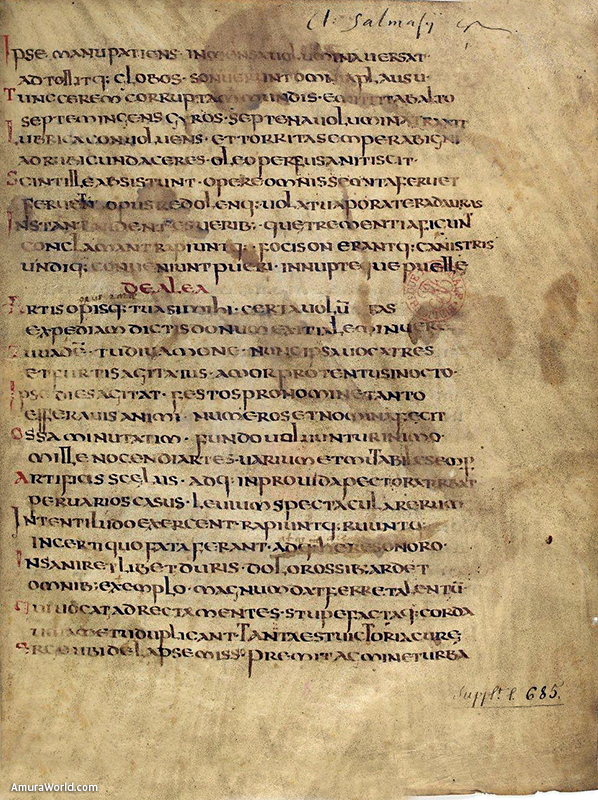 Cl. Salmasij
IPSE MANU PATIENS · INMENSA UOLUMINA UERSAT ·
ADTOLLITQ; GLOBOS · SONUERUNT OMNIA PLAUSU ·
TUNC CEREREM CORRUPTAM UNDIS · EMITTIT AB ALTO
SEPTEM INGENS GYROS · SEPTENA UOLUMINA TRAXIT
LUBRICA CONUOLUENS · ET TORRITA SEMPER AB IGNI
AD RUBICUNDACERES · OLEO PERFUSA NITISCIT ·
SCINTILLE ABSISTUNT · OPERE OMNIS SEMITA FERUET
FERUET OPUS REDOLENQ; UOLAT UAPOR ATER AD AURAS
INSTANT UERIB; QUE TREMENTIA FIGUN
CONCLAMANT RAPIUNTQ; FOCIS ONERANTQ; CANISTRIS
UNDIQ; CONUENIUNT PUERI · INNUPTEQUE PUELLE
DE ALEA
ARTIS OPISQ; TUAS MIHI · CERTA UOLŪ FAS
EXPEDIAM DICTIS DONUM EXITIALE
TU DIUUM NUNC IPSA UOCAT RES
ET FURTIS AGITATUS · AMOR PROTENTUS IN OCTO ·
IPSE DIES AGITAT · FESTOS PRO NOMINE TANTO
EFFERA UIS ANIMI · NUMEROS ET NOMINA FECIT
OSSA MINUTATIM · FUNDO UOLUUNTUR IN IMO ·
MILLE NOCENDI ARTES · UARIUM ET MUTABILE SEMP;
ARTIFICIS SCELUS · ADQ; INPROUIDA PECTORA
PER UARIOS CASUS · LEUIUM SPECTACULA RERUM
INTENTI LUDO EXERCENT · RAPIUNTQ; RUUNTQ;
INCERTI QUO FATA FERANT · ADQ; SONORO ·
INSANIRE LIBET DURIS · DOLOR OSSIB; ARDET
OMNIB; EXEMPLO · MAGNUM DAT FERRE TALENTŪ
QUI UOCAT AD RECTA MENTES · STUPEFACTAQ; CORDA
DUPLICANT · TANTA EST UICTORIA CURE
UBI DELAPSE MISSO · PREMIT AGMINE TURBA
Supplt. l. 685.
AmuraWorld.com